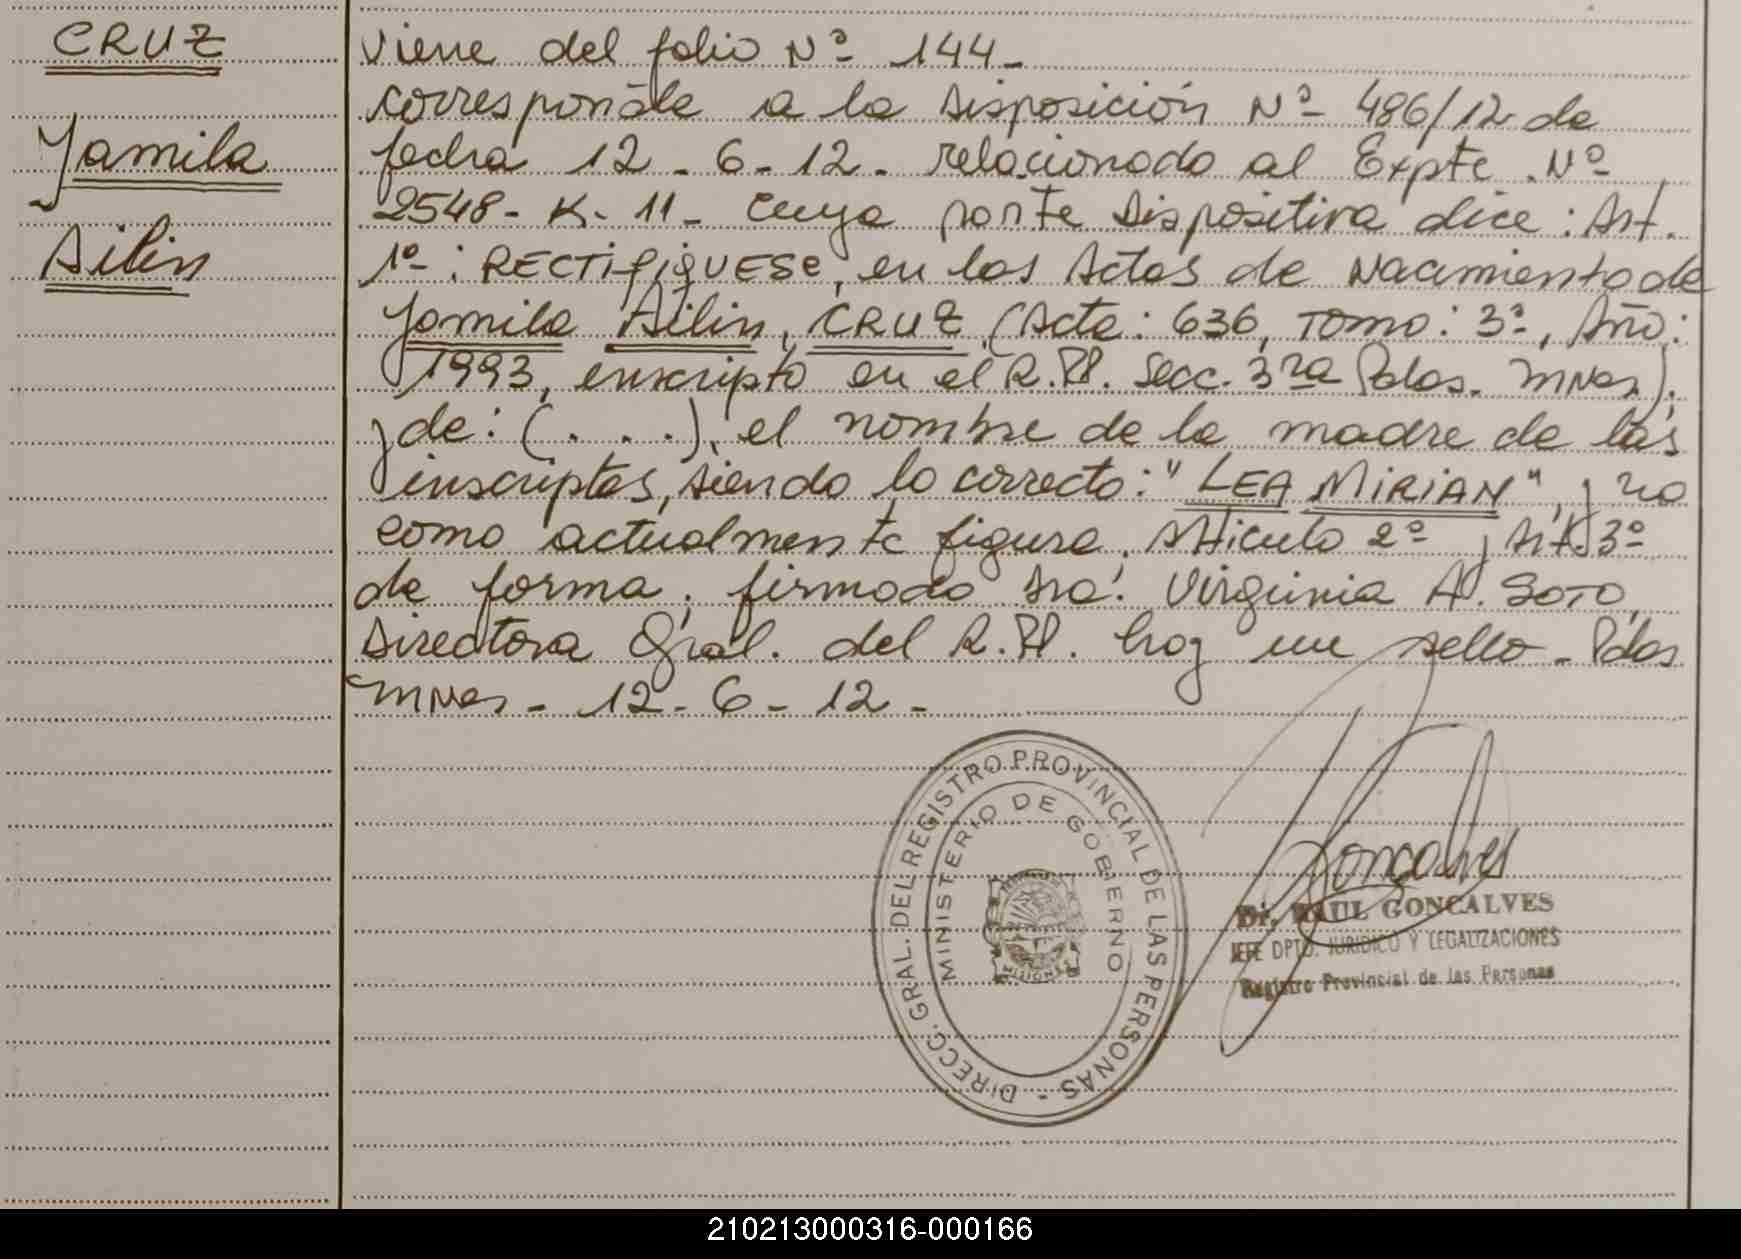 CRUZ
Yamila
Ailin
Viene del folio Nº 144-
corresponde a la Disposición Nº 486/12 de
fecha 12-6-12. relacionado al Expte. Nº
2548-K-11- cuya parte Dispositiva dice: Art.
1º: RECTIFIQUESE, en las Actas de Nacimiento de
Yamila Ailin, CRUZ (Acta: 636, Tomo: 3º, Año:
1993, inscripto en el R.P. Secc. 3ra Pdas. Mnes),
y de: (. . .), el nombre de la madre de las
inscriptas, siendo lo correcto: "LEA MIRIAN", y no
como actualmente figura. Artículo 2º y Art. 3º
de forma, firmado Sra. Virginia A. SOTO,
Directora Gral. del R.P. hay un sello. Pdas
Mnes- 12-6-12-
DIRECC. GRAL. DEL REGISTRO PROVINCIAL DE LAS PERSONAS -
MINISTERIO DE GOBIERNO
MISIONES
Goncalves
Dr. RAUL GONCALVES
JEFE DPTO. JURIDICO Y LEGALIZACIONES
Registro Provincial de las Personas
210213000316-000166